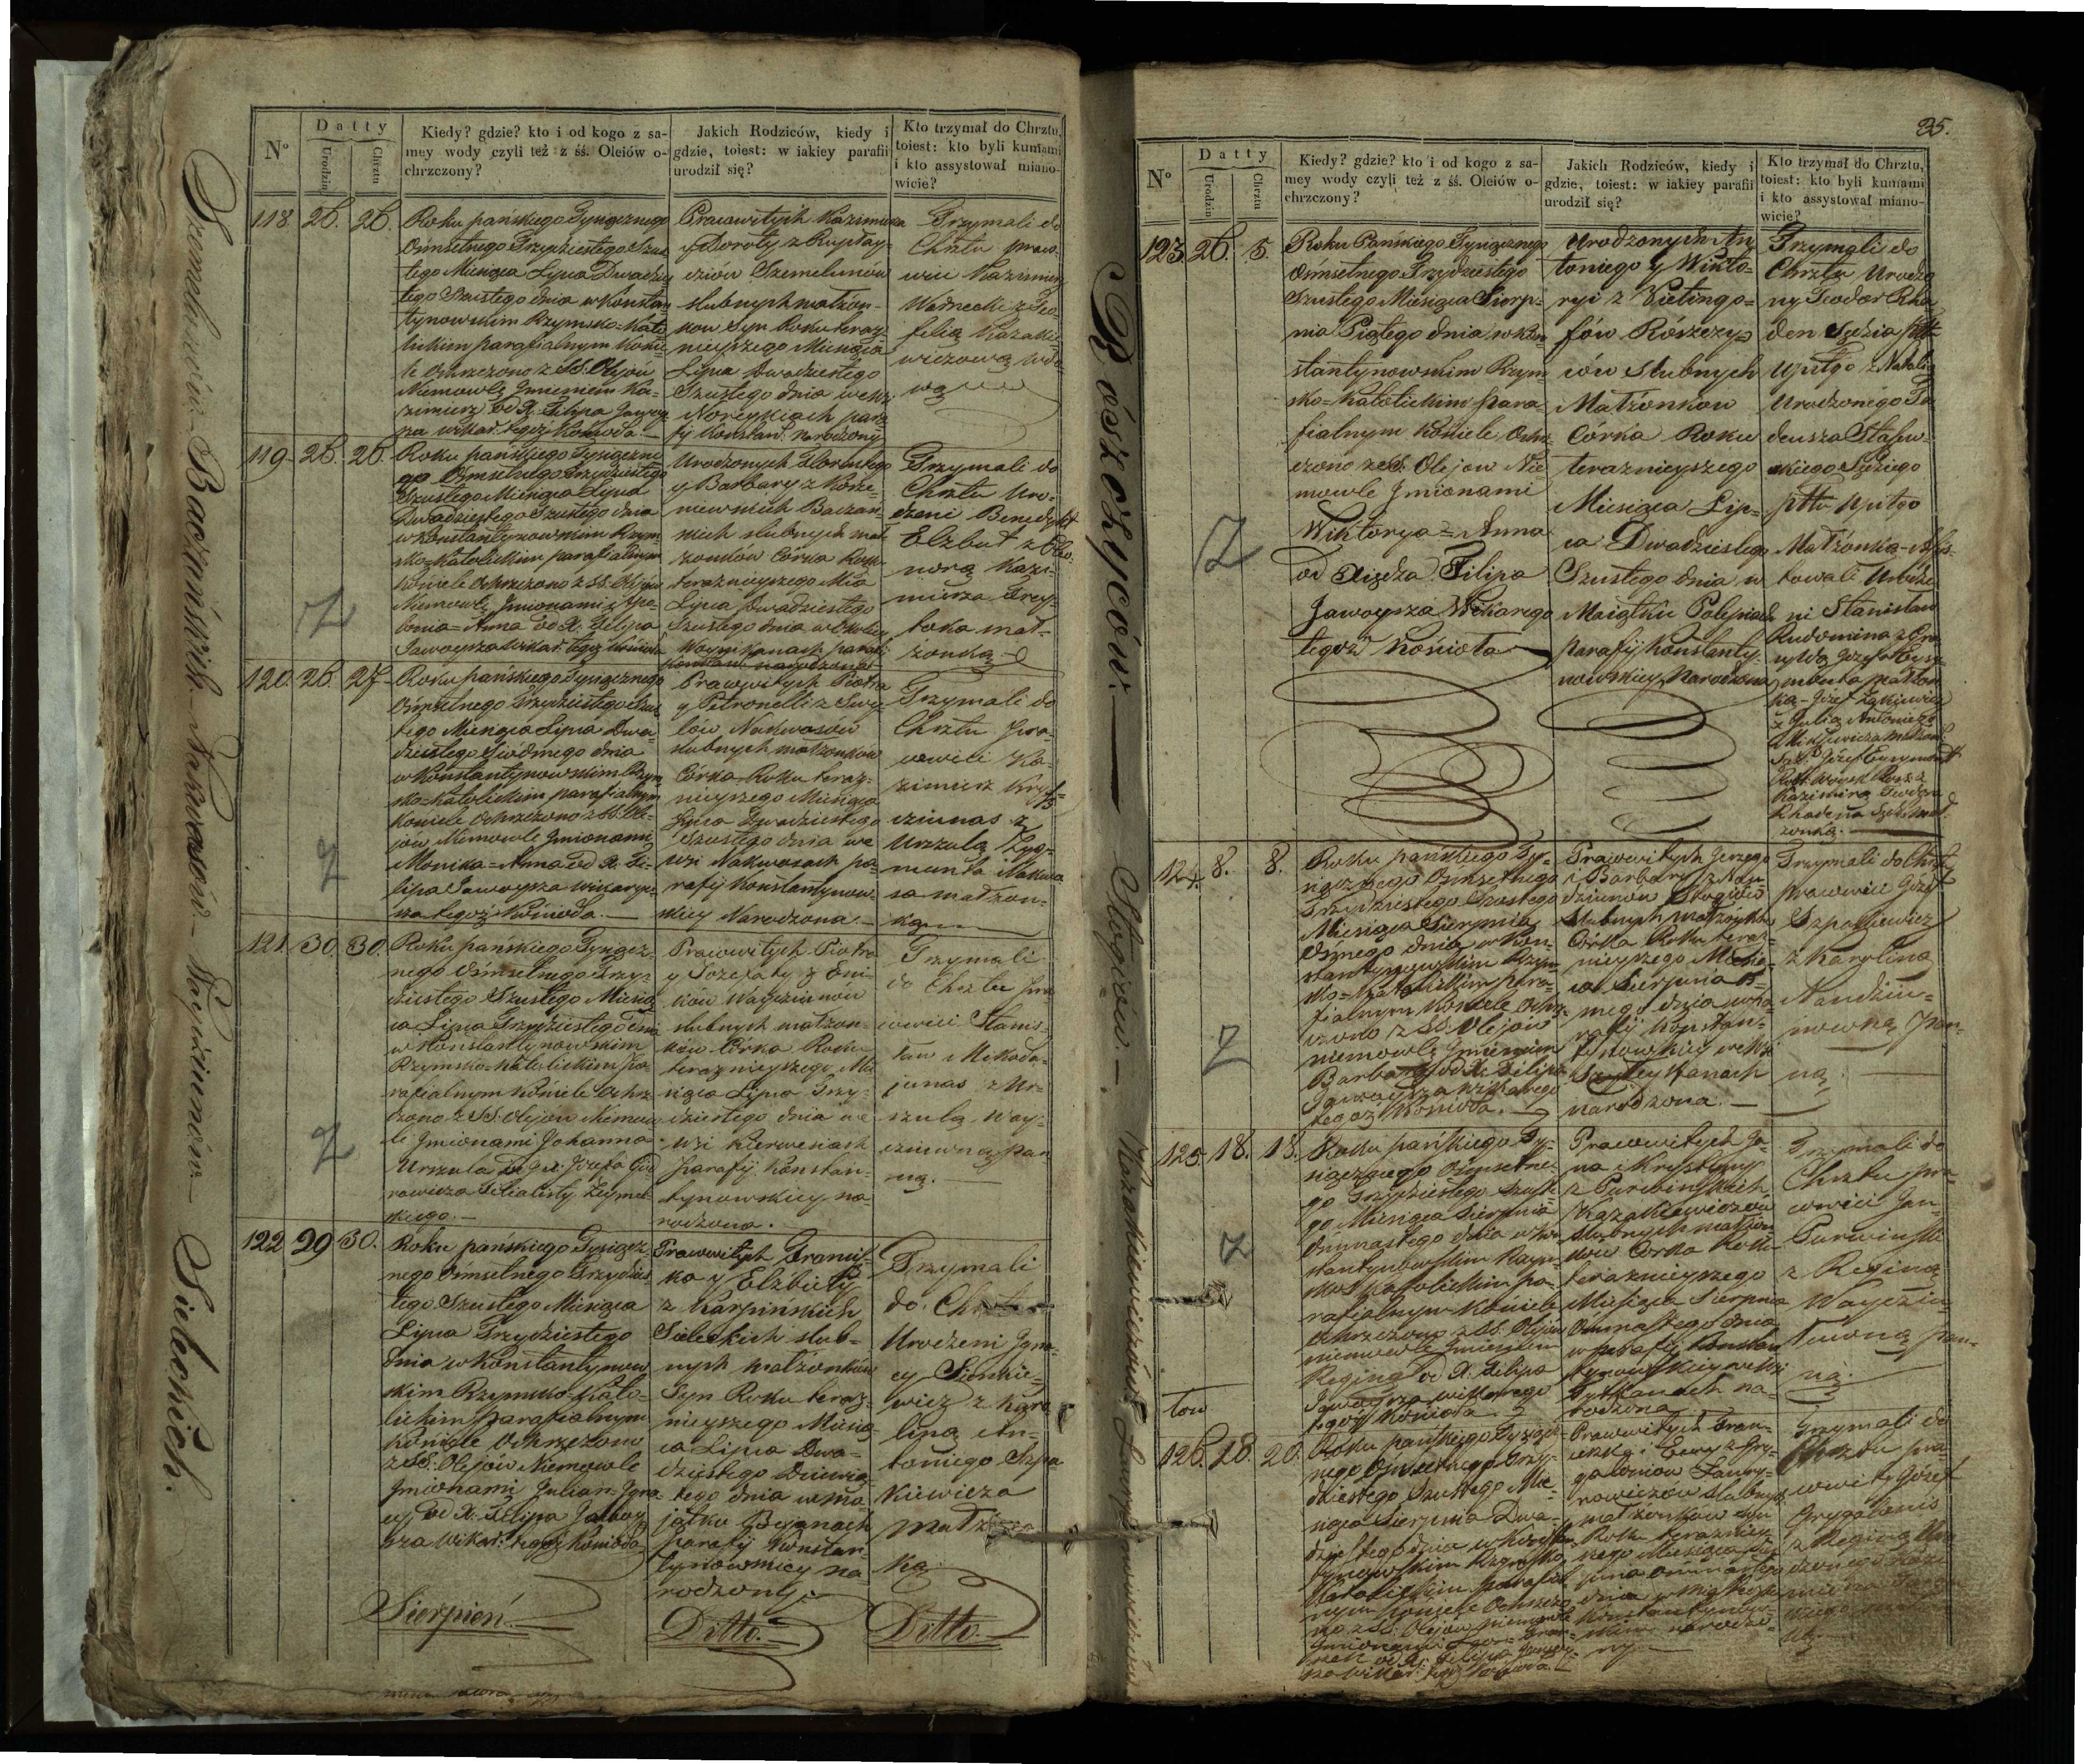 Szemelunów. Baczańskich. Nakwasów. Wayciunów. Sieleckich.
Nº
Datty
Urodzin
Chrztu
Kiedy? gdzie? kto i od kogo z sa-
mey wody czyli też z śś. Oleiów o-
chrzczony?
Jakich Rodziców, kiedy i
gdzie, toiest: w iakiey parafii
urodził się?
Kto trzymał do Chrztu,
toiest: kto byli kumami
i kto assystował miano-
wicie?
118 26. 26.
Roku pańskiego Tysiącznego
Ośmsetnego Trzydziestego Szus
tego Miesiąca Lipca Dwadzies
tego Szustego dnia w Konstan
tynowskim Rzymsko-Kato
lickim parafialnym Koście-
le Ochrzczono z SS. Olejow
Niemowle Jmieniem Ka-
zimierz od X. Filipa Jawoy
sza wikar: tegoż Kościoła.
Pracowitych Kazimierza
y Doroty z Rupłay-
ciów Szemelunów
ślubnych małżon-
kow Syn Roku teraz-
nieyszego Miesiąca
Lipca Dwadziestego
Szustego dnia we wsi
Noreykiach para
fij Konstant. Narodzony
Trzymali do
Chrztu praco-
wici Kazimierz
Wadnecki z Teo-
filią Kazakie-
wiczową wdo-
wą
119 26. 26.
Roku pańskiego Tysiączne
go Ośmsetnego Trzydziestego
Szustego Miesiąca Lipca
Dwadziestego Szustego dnia
w Konstantynowskim Rzym
sko-Katolickim parafialnym
Kościele Ochrzczono z SS. Olejów
Niemowle Jmionami Apo-
lonia-Anna od X. Filipa
Jawoysza Wikar. tegoż Kościoła
Urodzonych Florentego
y Barbary z Korze-
niewskich Baczań-
skich ślubnych mał
żonków Córka Roku
teraznieyszego Mca
Lipca Dwadziestego
Szustego dnia w Okolicy
Woynikanach parafij
Konstant. narodzona
Trzymali do
Chrztu Uro-
dzeni Benedykt
Elzbut z Eleo-
norą Kazi-
mierza Frey-
taka mał-
żonką
120. 26. 27
Roku pańskiego Tysiącznego
Ośmsetnego Trzydziestego Szus
tego Miesiąca Lipca Dwa-
dziestego Siodmego dnia
w Konstantynowskim Rzym
sko-Katolickim parafialnym
Kościele Ochrzczono z SS. Ole-
jów Niemowle Jmionami
Monika-Anna od X. Fi-
lipa Jawoysza wikaryu-
sza tegoż Kościoła.
Pracowitych Piotra
y Petronelli z
Nakwasów
ślubnych małżonkow
Córka Roku teraz-
nieyszego Miesiąca
Lipca Dwadziestego
Szustego dnia we
wsi Nakwasach pa-
rafij Konstantynow-
skiey Narodzona.
Trzymali do
Chrztu Pra-
cowici Ka-
zimierz
cziunas z
Urszulą Zyg-
munta Nakwa
sa małżon-
ką
121. 30. 30.
Roku pańskiego Tysiącz-
nego Ośmsetnego Trzy-
dziestego Szustego Miesią
ca Lipca Trzydziestego dnia
w Konstantynowskim
Rzymsko-Katolickim Pa-
rafialnym Kościele Ochrz
czono z SS. Olejow Niemow
le Jmionami Johanna-
Urszula od X. Józefa
rowicza Filialisty Żeyme-
skiego.
Pracowitych Piotra
y Jozefaty z
ków Wayciunów
ślubnych małżon-
ków Córka Roku
teraznieyszego Mie
siąca Lipca Trzy-
dziestego dnia we
wsi Kierwesiach
parafij Konstan-
tynowskiey na
rodzona.
Trzymali
do Chrztu Pra
cowici Stanis-
ław Mikoła-
junas z Ur-
szulą Way-
cziuwną pan
ną.
122 29 30.
Roku pańskiego Tysiącz-
nego Ośmsetnego Trzydzies
tego Szustego Miesiąca
Lipca Trzydziestego
dnia w Konstantynow
skim Rzymsko-Kato-
lickim parafialnym
Kościele Ochrzczono
z SS. Olejów Niemowle
Jmionami Julian Igna
cy od X. Filipa Jawoy
sza wikar: tegoż Kościoła
Pracowitych Francisz-
ka y Elżbiety
z Karpinskich
Sieleckich ślub-
nych małżonków
Syn Roku teraz-
nieyszego Miesią-
ca Lipca Dwa-
dziestego Dziewią
tego dnia w ma
jątku Byganach
parafij Konstan-
tynowskiey na-
rodzony.
Trzymali
do Chrztu
Urodzeni Igna-
cy Sienkie-
wicz z Karo
liną An-
toniego Szpa
kiewicza
małżon
ką
Sierpień.
Ditto.
Ditto.
85.
Rószczyców. Stogisów. Kazakiewiczów. Ławrynowiczów
Nº
Datty
Urodzin
Chrztu
Kiedy? gdzie? kto i od kogo z sa-
mey wody czyli też z śś. Oleiów o-
chrzczony?
Jakich Rodziców, kiedy i
gdzie, toiest: w iakiey parafii
urodził się?
Kto trzymał do Chrztu,
toiest: kto byli kumami
i kto assystował miano-
wicie?
123 26. 5.
Roku Pańskiego Tysiącznego
Ośmsetnego Trzydziestego
Szustego Miesiąca Sierp-
nia Piątego dnia w Kon-
stantynowskim Rzym-
sko-Katolickim para-
fialnym Kościele Ochrz
czono z SS. Olejow Nie
mowle Jmionami
Wiktorya-Anna
od Xiędza Filipa
Jawoysza Wikarego
tegoż Kościoła
Urodzonych An
toniego y Wikto-
ryi z Vietingo-
fów Rószczy-
ców Ślubnych
Małżonkow
Córka Roku
teraznieyszego
Miesiąca Lip-
ca Dwadziestego
Szustego dnia w
Maiątku Polepiach
parafij Konstanty-
nowskiey Narodzona
Trzymali do
Chrztu Urodzo
ny Teodor Rha
den Sędzia pttu
Upitgo z Natalią
Urodzonego Ta
deusza Stasew-
skiego Sędziego
pttu Upitgo
Małżonką-Assis-
towali Urodze
ni Stanisław
Rudomina z
Józefa
małżon
ką-Józef
z Julią Antoniego
małżon
Józef
Kazimirą Teodora
Rhadena małż
żonką.
124. 8. 8.
Roku pańskiego Ty-
siącznego Ośmsetnego
Trzydziestego Szustego
Miesiąca Sierpnia
Ósmego dnia w Kon-
stantynowskim Rzym
sko-Katolickim para-
fialnym Kościele Ochrz-
czono z SS. Olejów
niemowle Jmieniem
Barbara od X. Filipa
Jawoysza Wikarego
tegoż Kościoła.
Pracowitych Jerzego
i Barbary z Nan
dziunów Stogisów
ślubnych małżonków
Córka Roku teraz-
nieyszego Miesią-
ca Sierpnia Ós-
mego dnia w Pa-
rafij Konstan-
tynowskiey we wsi
narodzona.
Trzymali do Chrztu
pracowici Józef
Szpakiewicz
z Karoliną
Nandziu-
nowną Pan-
ną.
125. 18. 18.
Roku pańskiego Ty-
siącznego Ośmsetne-
go Trzydziestego Szuste
go Miesiąca Sierpnia
Ośmnastego dnia w Kon
stantynowskim Rzym-
sko-Katolickim pa-
rafialnym Kościele
Ochrzczono z SS. Olejów
niemowle Jmieniem
Regina od X. Filipa
Jawoysza wikarego
tegoż Kościoła.
Pracowitych Ja-
na i Krystyny
z Purwinskich
Kazakiewiczów
ślubnych małżon
kow Córka Roku
teraznieyszego
Miesiąca Sierpnia
Ośmnastego dnia
w parafij Konstan
tynowskiey we wsi
na-
rodzona.
Trzymali do
Chrztu pra-
cowici Jan
Purwinski
z Reginą
Wayciu-
nowną pan-
ną.
126. 18. 20.
Roku pańskiego Tysiącz-
nego Ośmsetnego Trzy-
dziestego Szustego Mie-
siąca Sierpnia Dwu-
dziestego dnia w Konstan
tynowskim Rzymsko
Katolickim parafial
nym Kościele Ochrzczo
no z SS. Olejów niemowle
Jmionami
od X. Filipa Jawoy-
sza wikar: tegoż Kościoła.
Pracowitych Fran-
ciszka i Ewy z Gry-
galoniow Ławry-
nowiczów ślubnych
małżonków syn
Roku terazniey-
szego Miesiąca Sier
pnia Ośmnastego
dnia
Konstantynow-
skim narodzo-
ny
Trzymali do
Chrztu pra-
cowity Józef
Grygalonis
z Reginą Uro
dzonego Kazi
mierza